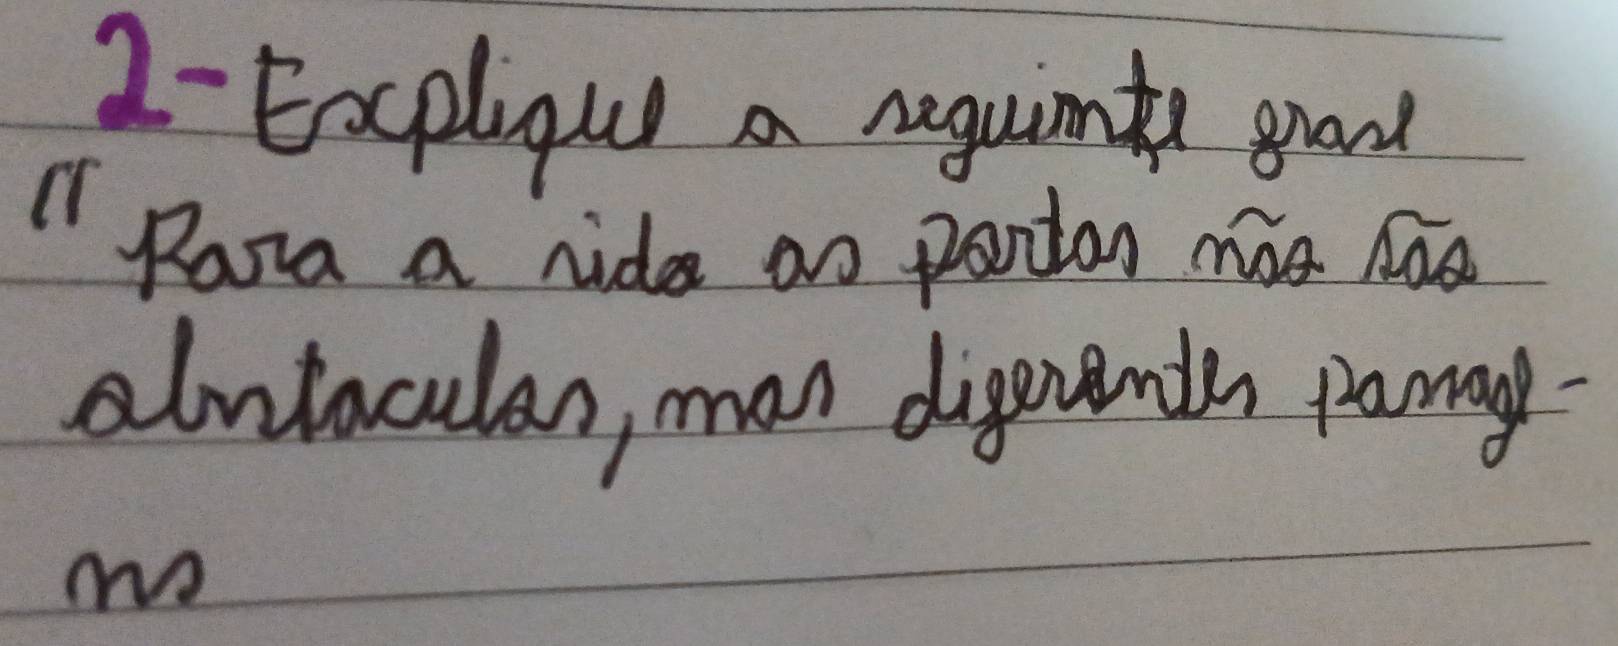 2-Explique a seguimte frase
"Para a vida as portas não são
obstaculos, mas diferentes passage-
ns